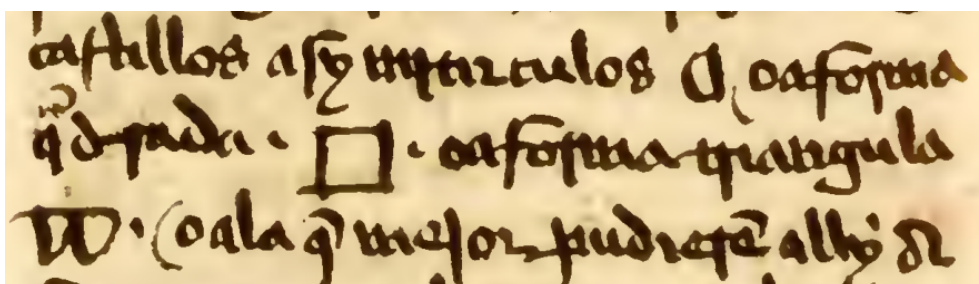 castillos asy mȷr̃culos D, oa forma
q̃drada · □ · oa forma triangula
· (o ala q̃ mejor pudierẽ ally